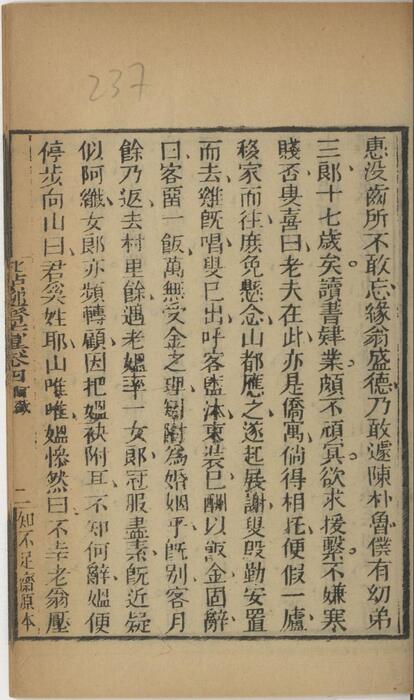 237
惠没齒所不敢忘緣翁盛德乃敢遽陳朴魯僕有幼弟
三郎十七歲矣讀書肄業頗不頑冥欲求援繫不嫌寒
賤否叟喜曰老夫在此亦是僑寓倘得相托便假一廬
移家而往庶免懸念山都應之遂起展謝叟殷勤安置
而去雞旣唱叟已出呼客盥沐束裝已酬以飯金固辭
曰客留一飯萬無受金之理矧附為婚姻乎旣别客月
餘乃返去村里餘遇老媼率一女郎冠服盡素旣近疑
似阿纖女郎亦頻轉顧因把媼袂附耳不知何辭媼便
停步向山曰君奚姓耶山唯唯媼慘然曰不幸老翁壓
卷四 阿纖
二 知不足齋原本